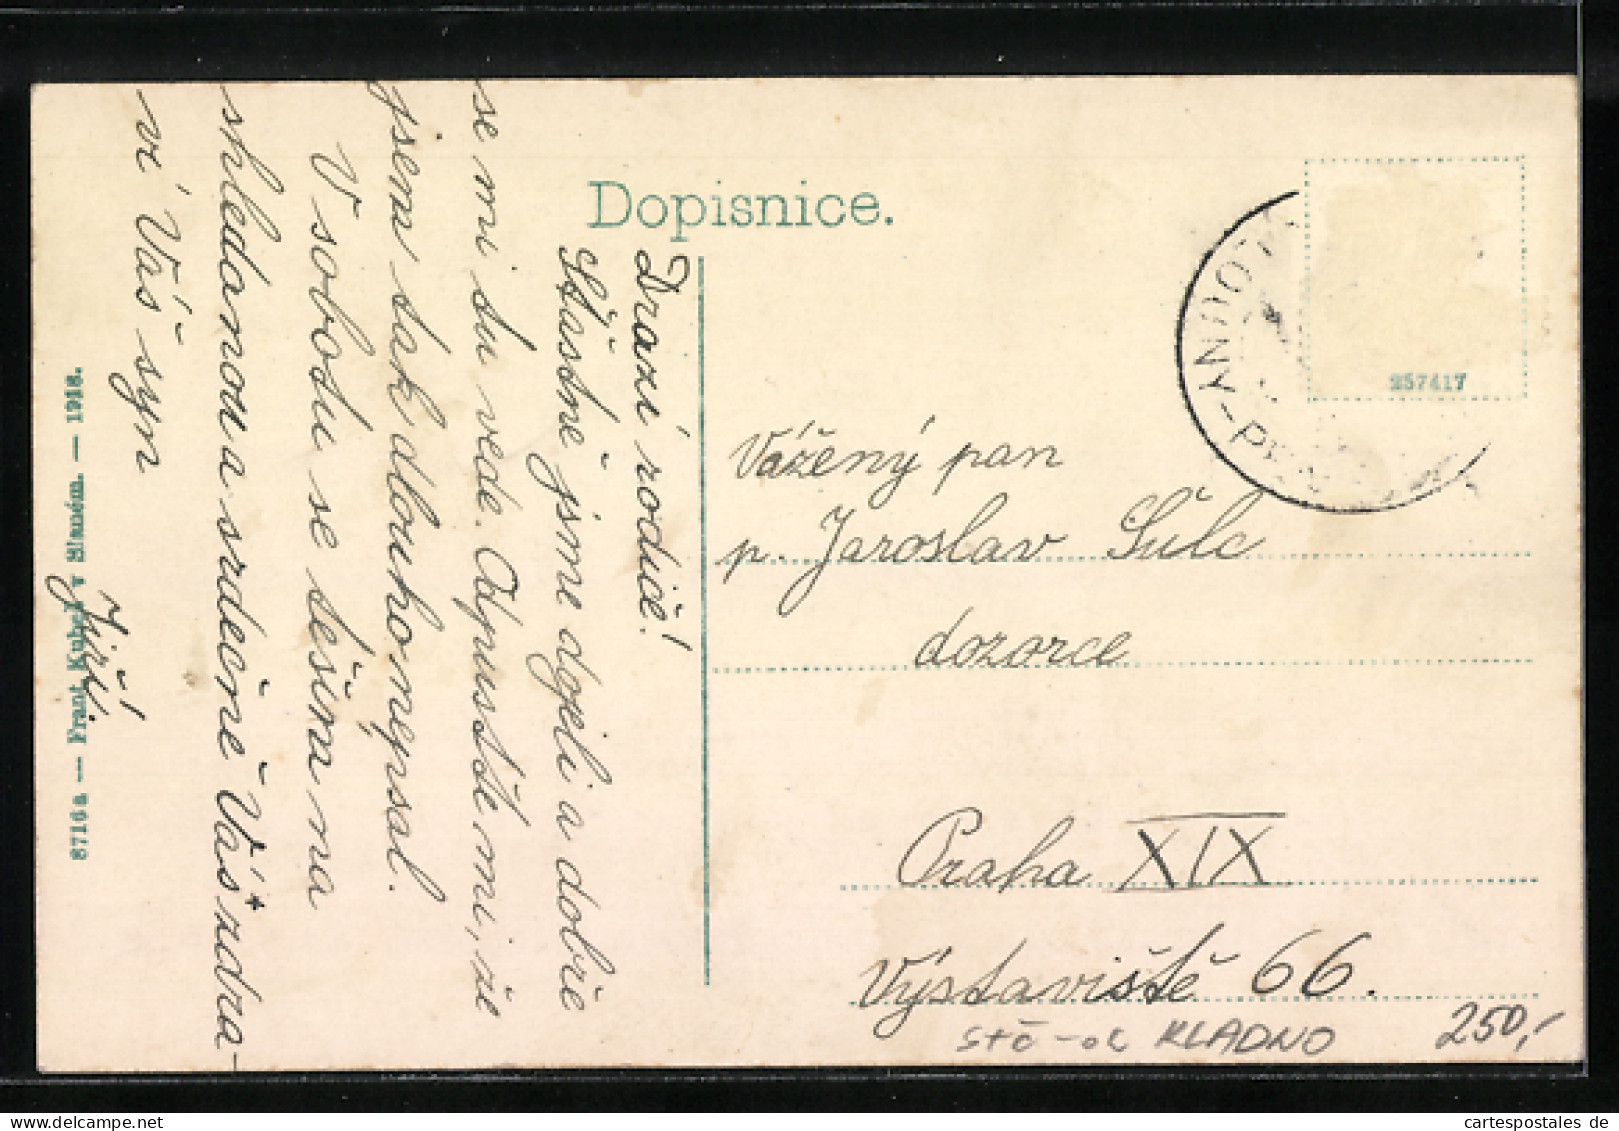 Dopisnice.
Drazí rodiče!
Šťastně jsme dojeli a dobře
se mi tu vede. Odpusťte mi, že
jsem tak dlouho nepsal.
V sobotu se těším na
shledanou a srdečně Vás zdra-
ví Váš syn
Jiří.
8716a — Frant. Kubeš v Slaném. — 1918.
257417
Vážený pan
p. Jaroslav Šulc
dozorce
Praha XIX
Výstaviště 66.
stč-ok KLADNO
250,-
cartespostales de